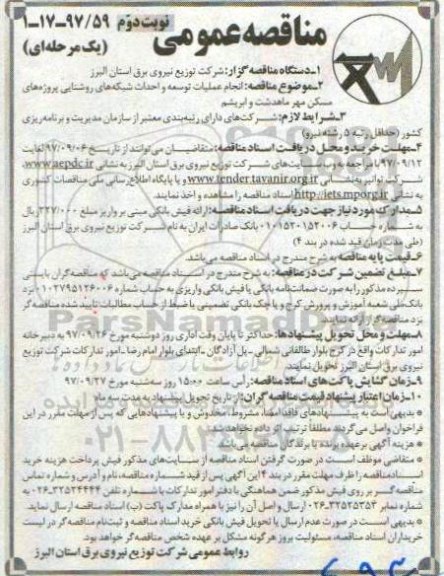 نوبت دوم
۱-۱۷-۹۷/۵۹
مناقصه عمومی
(یک مرحله‌ای)
۱-دستگاه مناقصه گزار: شرکت توزیع نیروی برق استان البرز
۲-موضوع مناقصه: انجام عملیات توسعه و احداث شبکه‌های روشنایی پروژه‌های
مسکن مهر ماهدشت و ابریشم
۳-شرایط لازم: شرکت‌های دارای رتبه‌بندی معتبر از سازمان مدیریت و برنامه‌ریزی
کشور (حداقل رتبه ۵ رشته نیرو)
۴-مهلت خرید و محل دریافت اسناد مناقصه: متقاضیان می‌توانند از تاریخ ۹۷/۰۹/۰۶ لغایت
۹۷/۰۹/۱۲ با مراجعه به وب سایت‌های شرکت توزیع نیروی برق استان البرز به نشانی www.aepdc.ir،
شرکت توانیر به نشانی www.tender.tavanir.org.ir و یا پایگاه اطلاع رسانی ملی مناقصات کشوری
به نشانی http://iets.mporg.ir اسناد مناقصه را مشاهده و اخذ نمایند.
۵-مدارک مورد نیاز جهت دریافت اسناد مناقصه: ارائه فیش بانکی مبنی بر واریز مبلغ ۳۲۷/۰۰۰ ریال
به شماره حساب ۰۱۰۱۵۲۰۱۵۲۰۰۶ بانک صادرات ایران به نام شرکت توزیع نیروی برق استان البرز
(طی مدت زمان قید شده در بند ۴)
۶-قیمت پایه مناقصه به شرح مندرج در اسناد مناقصه می‌باشد.
۷-مبلغ تضمین شرکت در مناقصه: به شرح مندرج در اسناد مناقصه می‌باشد که مناقصه گران بایستی
سپرده مذکور را به صورت ضمانتنامه بانکی یا فیش بانکی واریزی به حساب شماره ۰۱۰۲۷۹۵۱۲۶۰۰۶ نزد
بانک ملی شعبه آموزش و پرورش کرج و یا چک بانکی تضمینی یا ضبط از حساب مطالبات تایید شده مناقصه گر
نزد مناقصه گزار ارائه نمایند.
۸-مهلت و محل تحویل پیشنهادها: حداکثر تا پایان وقت اداری روز دوشنبه مورخ ۹۷/۰۹/۲۶ به دبیرخانه
امور تدارکات واقع در کرج بلوار طالقانی شمالی-پل آزادگان-ابتدای بلوار امام رضا-امور تدارکات شرکت توزیع
نیروی برق استان البرز تحویل نمایند.
۹-زمان گشایش پاکت‌های اسناد مناقصه: رأس ساعت ۱۵:۰۰ روز سه‌شنبه مورخ ۹۷/۰۹/۲۷
۱۰-زمان اعتبار پیشنهاد قیمت مناقصه گران: از تاریخ تحویل پیشنهاد به مدت سه ماه
* بدیهی است به پیشنهادهای فاقد امضا، مشروط، مخدوش و یا پیشنهادهایی که پس از مهلت مقرر در این
فراخوان واصل می‌گردند مطلقاً ترتیب اثر داده نخواهد شد.
* هزینه آگهی برعهده برنده یا برندگان مناقصه می‌باشد.
* متقاضی موظف است در صورت گرفتن اسناد مناقصه از سایت‌های مذکور فیش پرداخت هزینه خرید
اسناد مناقصه را ظرف مهلت مقرر در بند ۴ این آگهی پس از قید شماره مناقصه، نام و آدرس و شماره تماس
مناقصه گر بر روی فیش مذکور ضمن هماهنگی با دفتر امور تدارکات با شماره تلفن ۳۲۵۲۴۴۴۴-۰۲۶ به
شماره نمابر ۳۲۵۲۵۳۵۳-۰۲۶ ارسال و اصل آن را نیز با همراه مدارک پاکت (ب) اسناد مناقصه ارسال نماید.
* بدیهی است در صورت عدم ارسال یا تحویل فیش بانکی خرید اسناد مناقصه و ثبت نام مناقصه گر در لیست
خریداران اسناد مناقصه، مسئولیت بروز هرگونه مشکل بر عهده شخص مناقصه گر خواهد بود.
روابط عمومی شرکت توزیع نیروی برق استان البرز
ParsNamadData
۰۲۱-۸۸۳۴